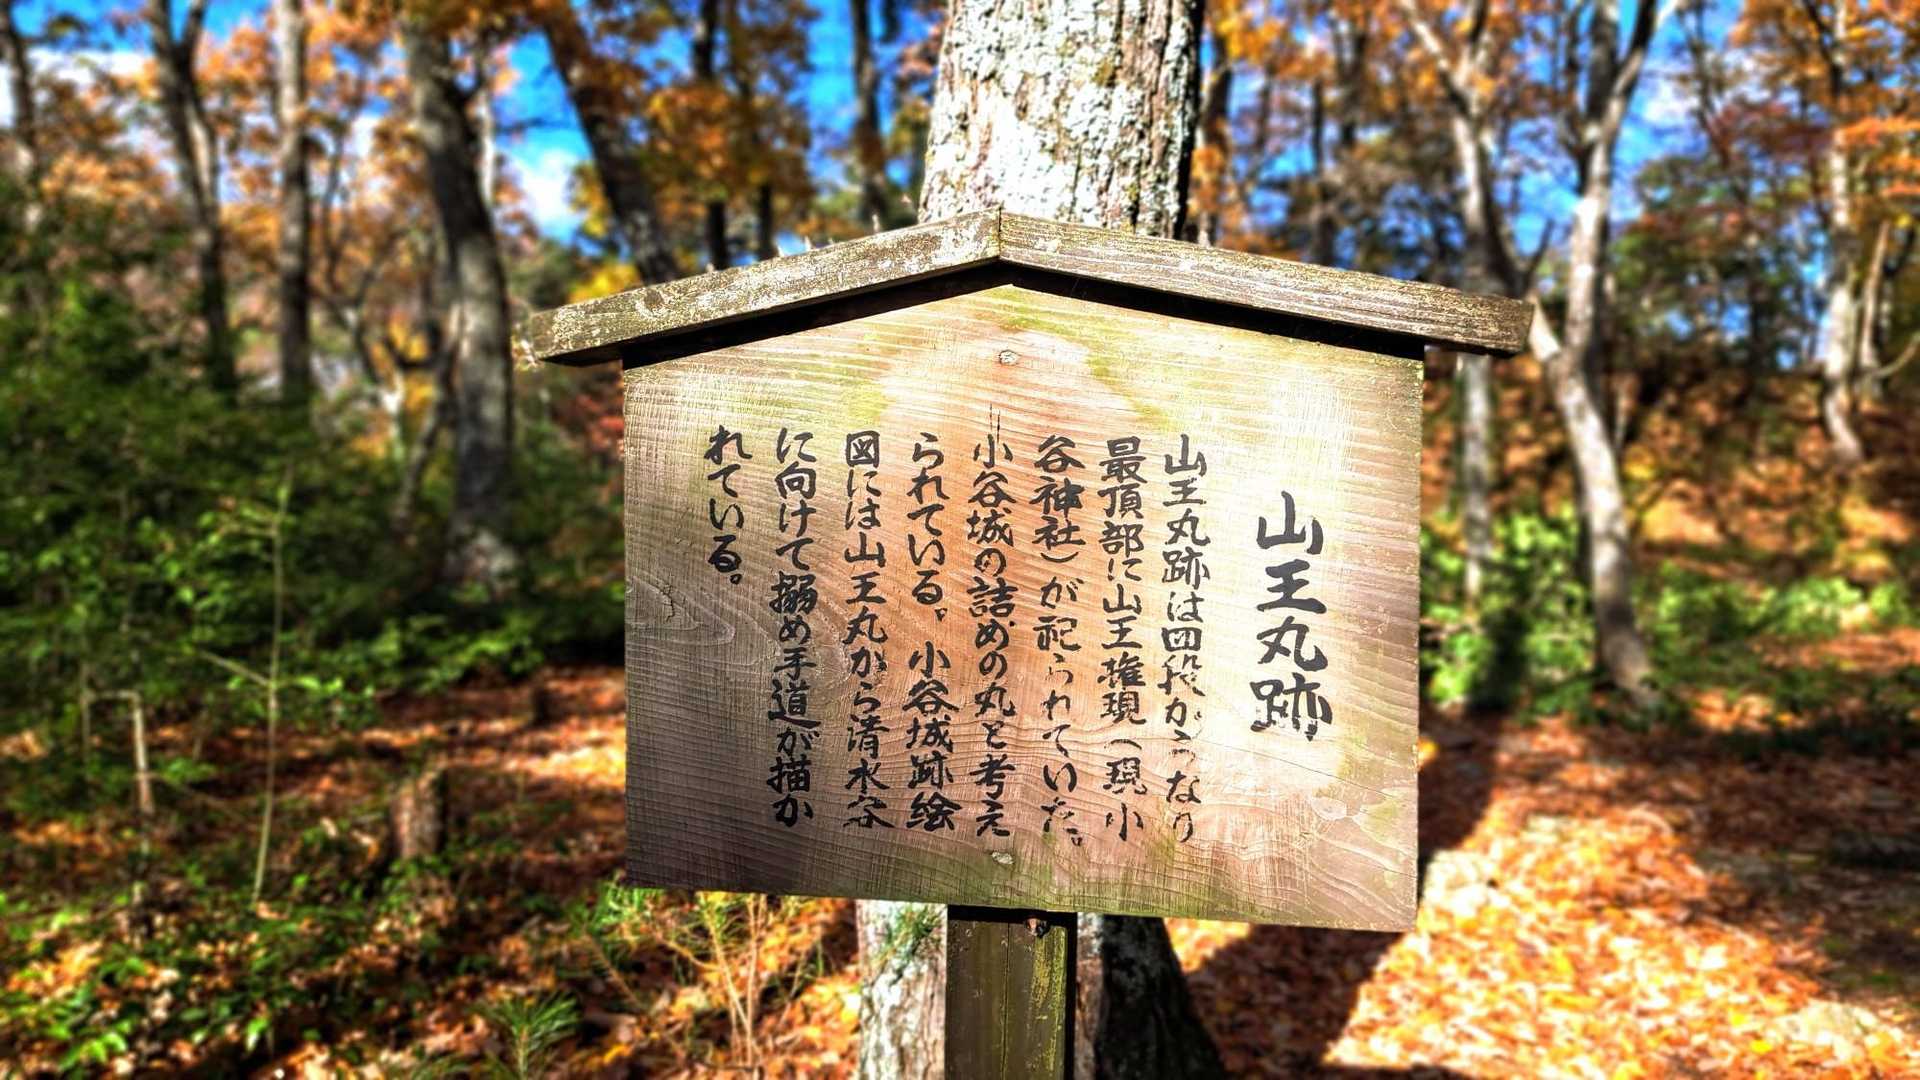 山王丸跡
山王丸跡は四段からなり
最頂部に山王権現(現小
谷神社)が祀られていた。
小谷城の詰めの丸と考え
られている。小谷城跡絵
図には山王丸から清水谷
に向けて搦め手道が描か
れている。